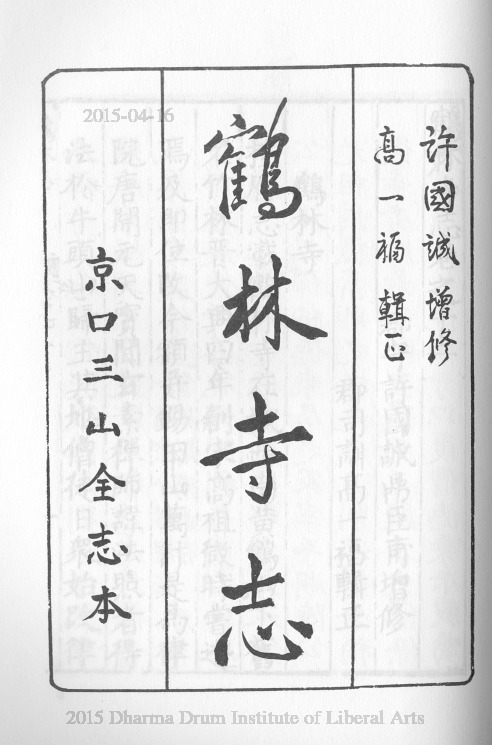 許國誠增修
高一福輯正
鶴林寺志
京口三山全志本
2015-04-16
2015 Dharma Drum Institute of Liberal Arts